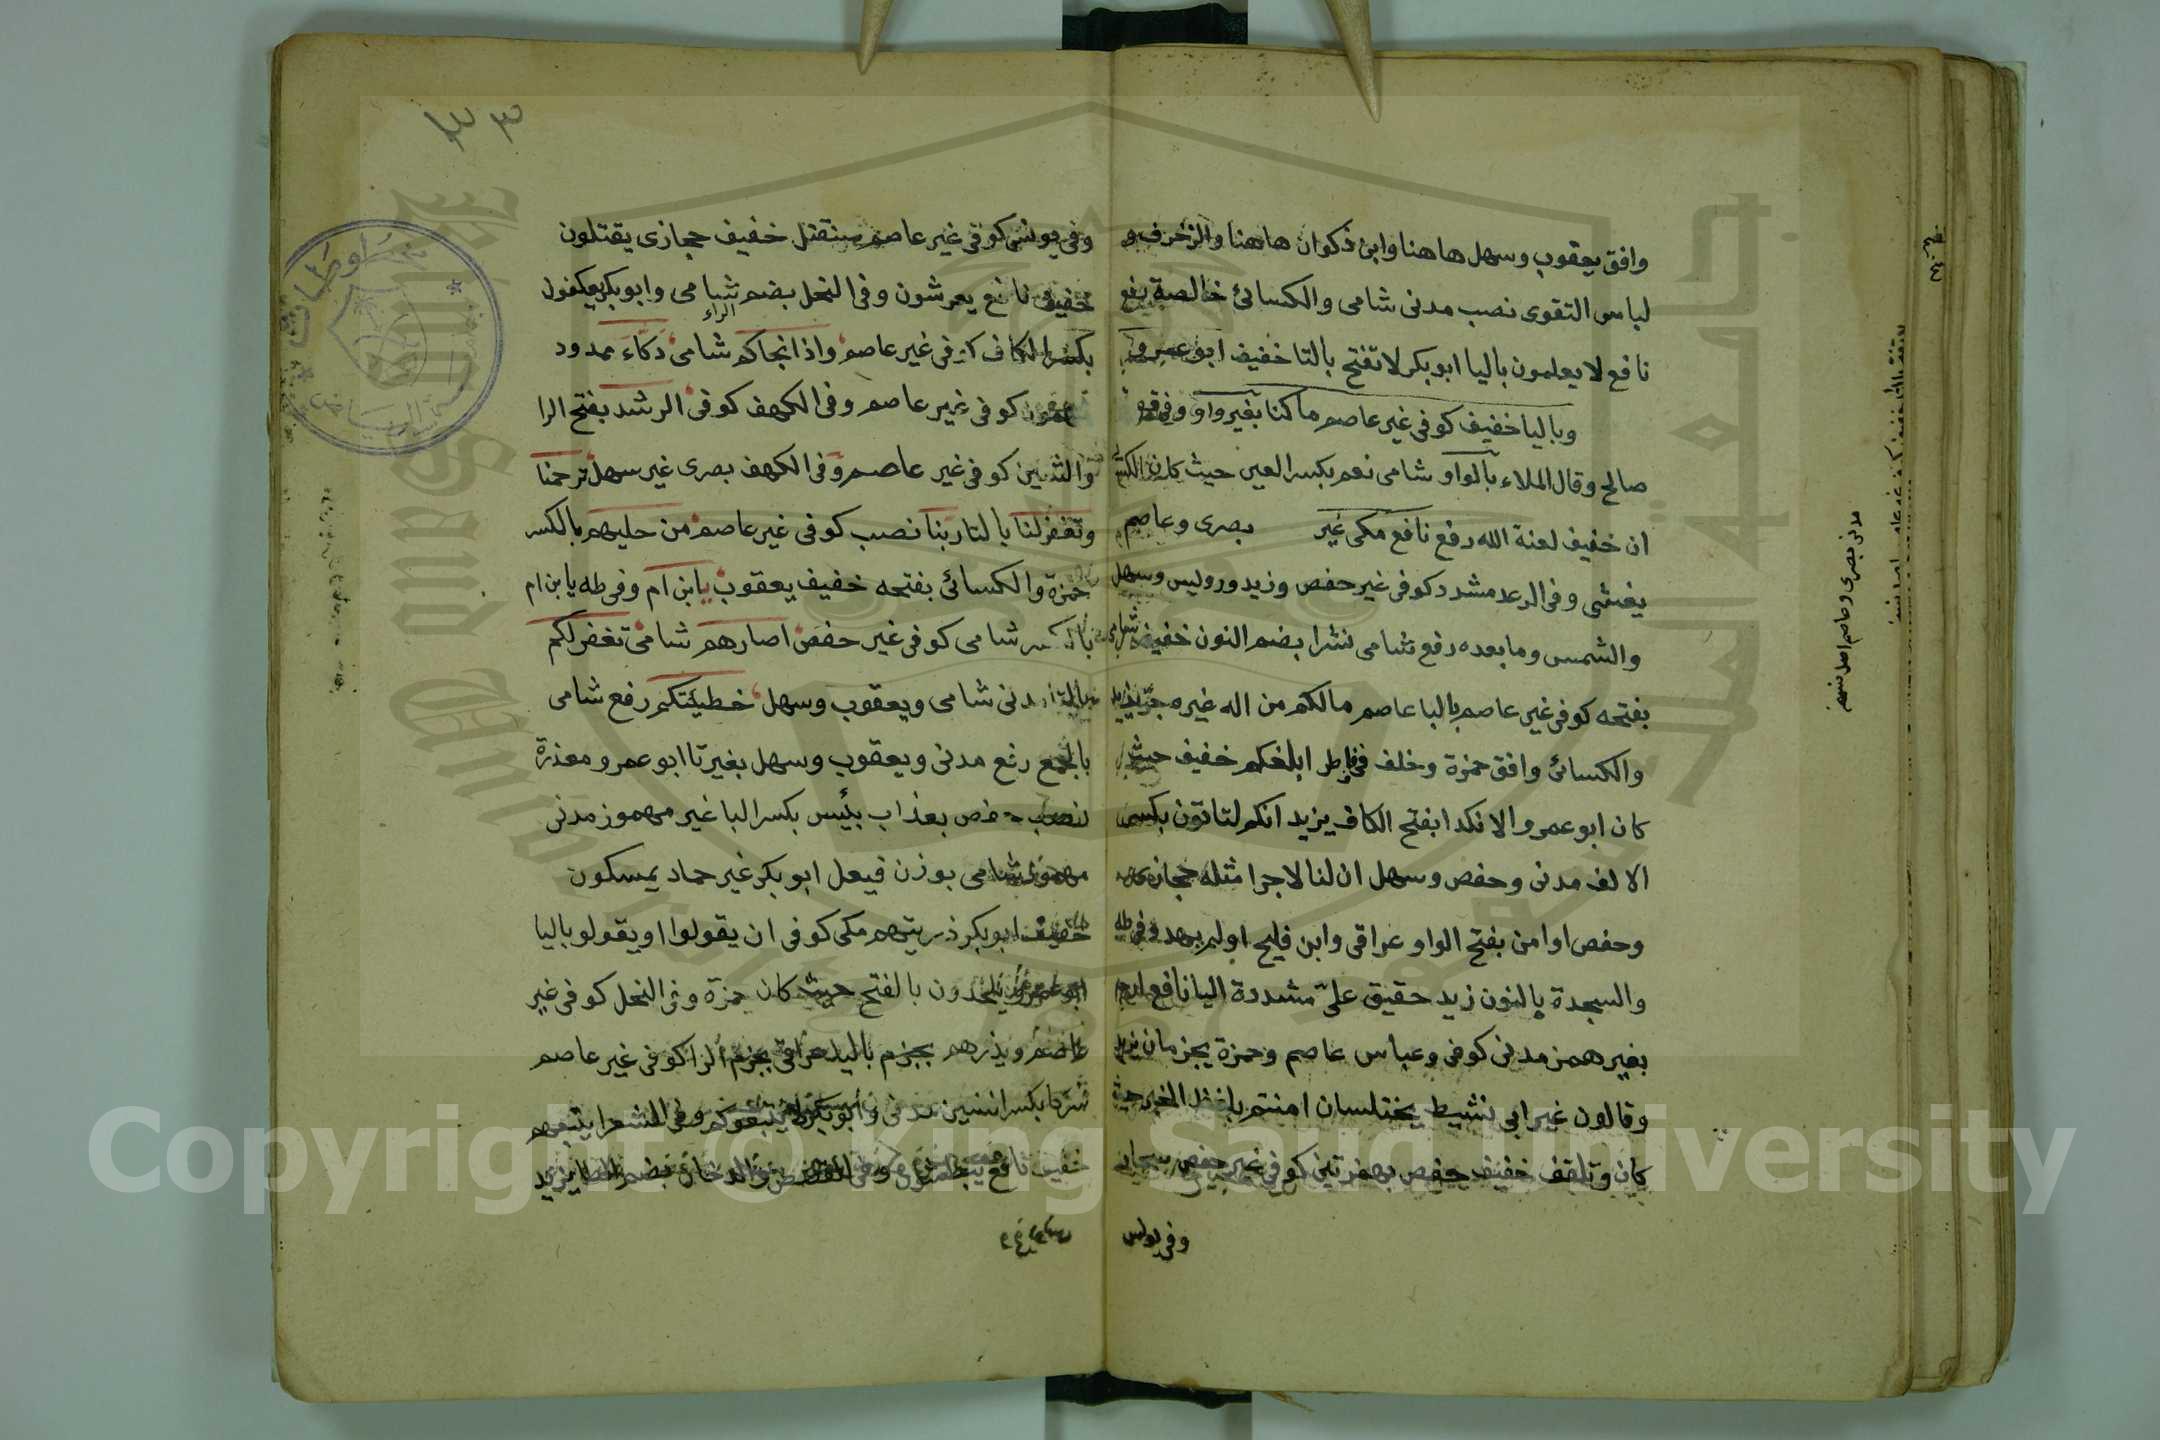 وافق يعقوب وسهل هاهنا وابن ذكوان هاهنا والزخرف و
لباس التقوى نصب مدنى شامى والكسائى خالصة رفع
نافع لا يعلمون باليا ابو بكر لا تفتح بالتا خفيف ابو عمرو
وباليا خفيف كوفى غير عاصم ما كنا بغير واو وفى قصة
صالح وقال الملاء بالواو شامى نعم بكسر العين حيث كان الكسائى
ان خفيف لعنة الله رفع نافع مكى غير بصرى وعاصم
يغشى وفى الرعد مشدد كوفى غير حفص وزيد ورويس وسهل
والشمس وما بعده رفع شامى نشرا بضم النون خفيف شامى
بفتحه كوفى غير عاصم بالبا عاصم مالكم من اله غيره جر يزيد
والكسائى وافق حمزة وخلف فى فاطر ابلغكم خفيف حيث
كان ابو عمرو الا نكدا بفتح الكاف يزيد انكم لتاتون بكسر
الالف مدنى وحفص وسهل ان لنا لاجرا مثله حجازى
وحفص اوامن بفتح الواو عراقى وابن فليح اولم يهد وفى طه
والسجدة بالنون زيد حقيق علىّ مشددة اليا نافع ارجه
بغير همز مدنى كوفى وعباس عاصم وحمزة يجزمان يزيد
وقالون غير ابى نشيط يختلسان امنتم بلفظ الخبر حيث
كان وتلقف خفيف حفص بهمزتين كوفى غير حفص
وفى يونس
مدنى بصرى وعاصم اصل نسخه
وفى يونس كوفى غير عاصم سنقتل خفيف حجازى يقتلون
خفيف نافع يعرشون وفى النحل بضم الراء شامى وابو بكر يعكفون
بكسر الكاف كوفى غير عاصم واذ انجاكم شامى دكاء ممدود
مهموز كوفى غير عاصم وفى الكهف كوفى الرشد بفتح الرا
والشين كوفى غير عاصم وفى الكهف بصرى غير سهل ترحمنا
وتغفر لنا بالتا ربنا نصب كوفى غير عاصم من حليهم بالكسر
حمزة والكسائى بفتحه خفيف يعقوب يابن ام وفى طه يابن ام
بالكسر شامى كوفى غير حفص اصارهم شامى تغفر لكم
بالتا مدنى شامى ويعقوب وسهل خطيئتكم رفع شامى
بالجمع رفع مدنى ويعقوب وسهل بغير تا ابو عمرو معذرة
نصب حفص بعذاب بئيس بكسر البا غير مهموز مدنى
مهموز شامى بوزن فيعل ابو بكر غير حماد يمسكون
خفيف ابو بكر ذريتهم مكى كوفى ان يقولوا او يقولو باليا
ابو عمرو يلحدون بالفتح حيث كان حمزة وفى النحل كوفى غير
عاصم ويذرهم بجزم باليا عراقى بجزم الرا كوفى غير عاصم
شركا بكسر الشين مدنى وابو بكر لا يتبعوكم وفى الشعرا يتبعهم
خفيف نافع يبطشون وفى القصص والدخان بضم الطا يزيد